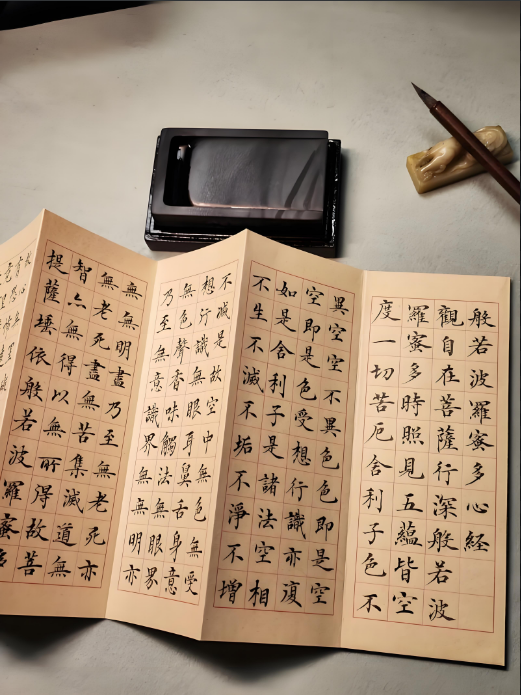 般若波羅蜜多心經
觀自在菩薩行深般若波
羅蜜多時照見五蘊皆空
度一切苦厄舍利子色不
異空空不異色色即是空
空即是色受想行識亦復
如是舍利子是諸法空相
不生不滅不垢不淨不增
不減是故空中無色無受
想行識無眼耳鼻舌身意
無色聲香味觸法無眼界
乃至無意識界無無明亦
無無明盡乃至無老死亦
無老死盡無苦集滅道無
智亦無得以無所得故菩
提薩埵依般若波羅蜜